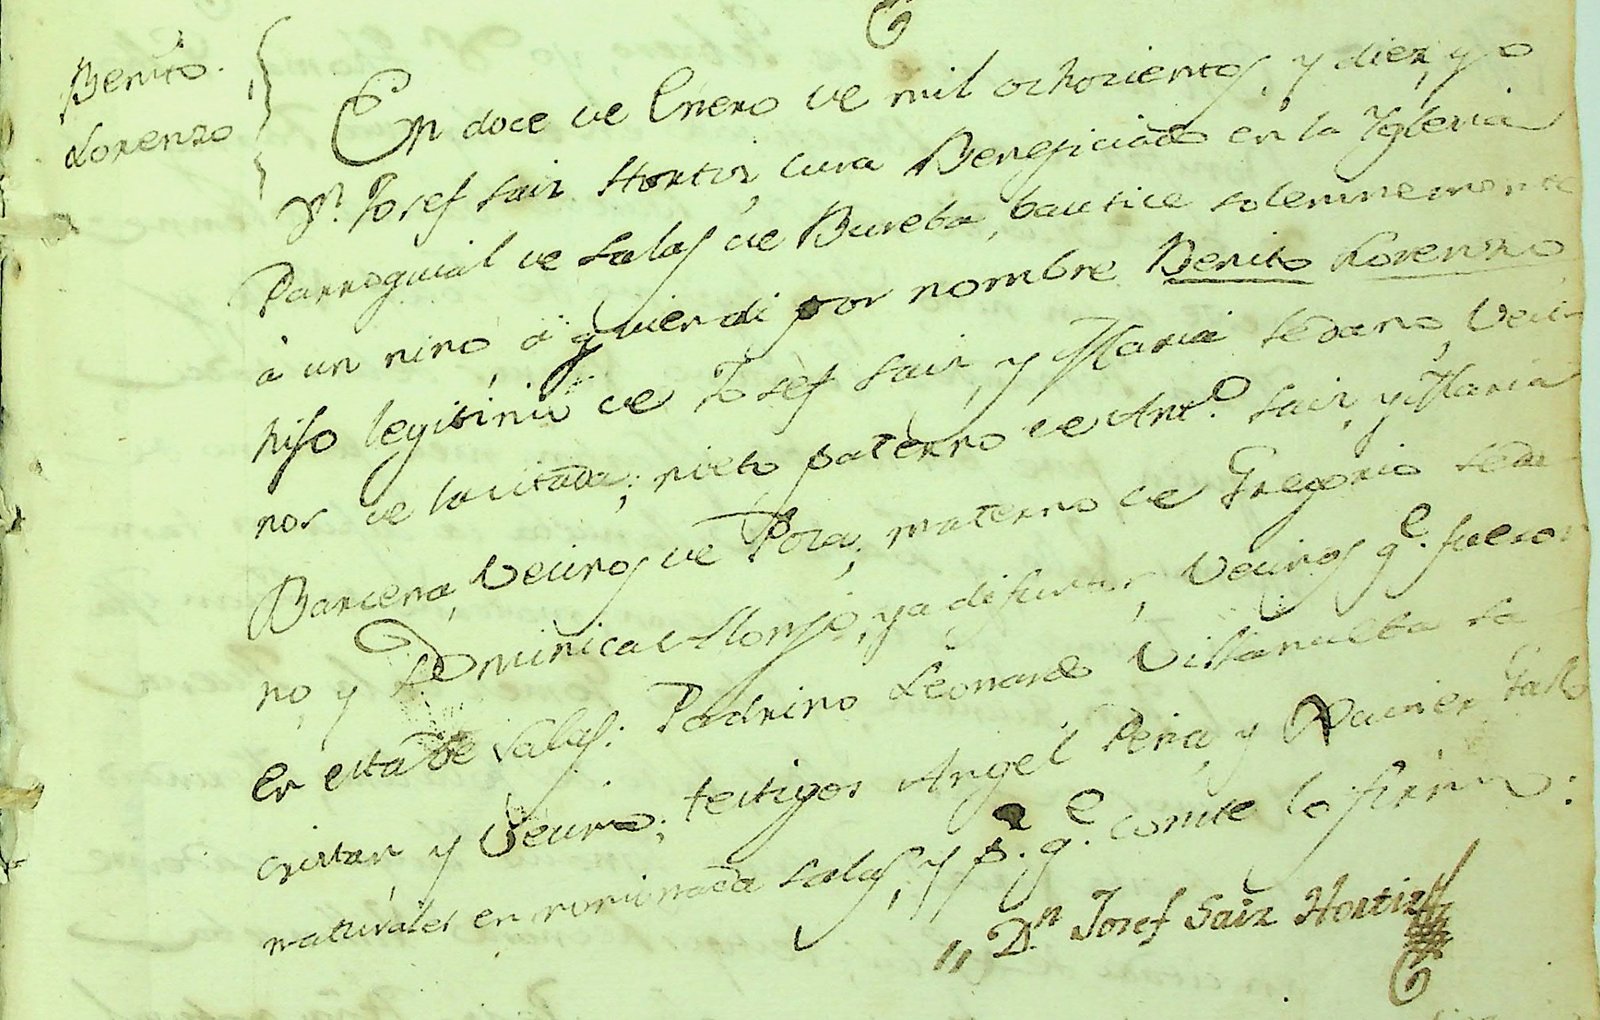 Benito
Lorenzo
En doce de Enero de mil ochocientos, y diez, yo
Dn. Josef Saiz Hortiz, Cura Beneficiado en la Yglesia
Parroquial de Salas de Bureba, bautice solemnemente
à un nino, à quien di por nombre Benito Lorenzo
hijo legitimo de Josef Saiz, y Maria Sedano, Veci-
nos de la citada; nieto paterno de Anto. Saiz, y Maria
Barcena, Vecinos de Poza; materno de Gregorio Seda-
no, y Dominica Alonso, ya difuntos, Vecinos qe. fueron
en esta de Salas: Padrino Leonardo Villanueba Sa-
cristan, y Vecino; testigos Angel Peña, y Xavier Gallo
naturales en mencionada Salas, y p. qe. conste lo firmo:
,, Dn Josef Saiz Hortiz